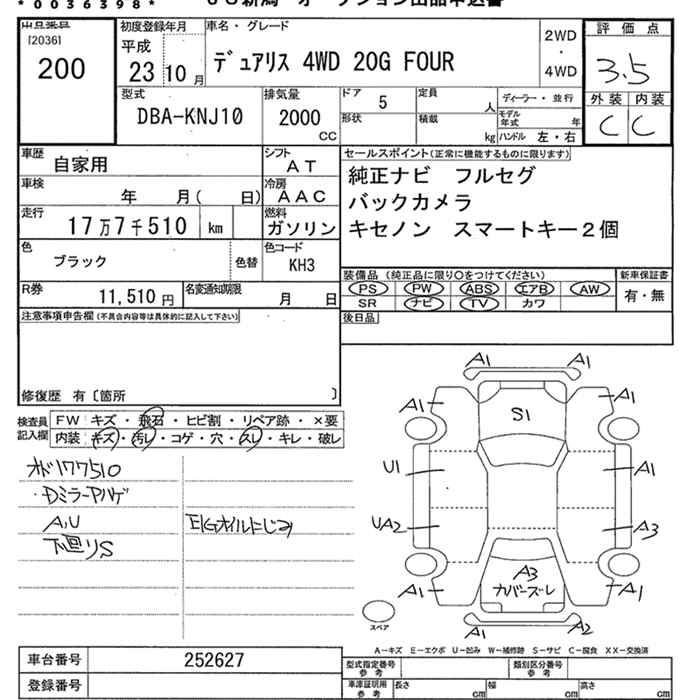 *0036398*
[2036]
200
初度登録年月
平成
23 10 月
車名・グレード
デュアリス 4WD 20G FOUR
2WD
・
4WD
評価点
3.5
外装 内装
C C
型式
DBA-KNJ10
排気量
2000
CC
ドア 5
定員 人
ディーラー・並行
形状
積載 kg
モデル年式 年
ハンドル 左・右
車歴
自家用
シフト
AT
車検
年 月( 日)
冷房
AAC
走行
17万7千510 km
燃料
ガソリン
色
ブラック
色替
色コード
KH3
R券
11,510 円
名変通知期限
月 日
セールスポイント(正常に機能するものに限ります)
純正ナビ フルセグ
バックカメラ
キセノン スマートキー2個
装備品(純正品に限り○をつけてください)
新車保証書
PS PW ABS エアB AW
SR ナビ TV カワ
有・無
後日品
注意事項申告欄(不具合内容等は具体的に記入して下さい)
修復歴 有〔箇所 〕
検査員記入欄
FW キズ・飛石・ヒビ割・リペア跡・×要
内装 キズ・汚レ・コゲ・穴・スレ・キレ・破レ
オド177510
・Dミラーアハゲ
A,U
下廻りS
E/Gオイルにじみ
A1 A1
S1
A1 A1
U1 A1
UA2 A3
A3
カバーズレ
A1 A1
A1 A2
スペア
A-キズ E-エクボ U-凹み W-補修跡 S-サビ C-腐食 XX-交換済
車台番号 252627
登録番号
型式指定番号
参考
類別区分番号
参考
車庫証明用
参考
長さ cm 幅 cm 高さ cm